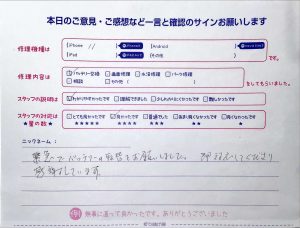 本日のご意見・ご感想など一言と確認のサインお願いします
修理機種は
iPhone 11
Android
iPad
その他
です。
修理内容は
バッテリー交換 画面修理 水没修理 パーツ修理
相談 その他
をしてもらいました。
スタッフの説明は
わかりやすかったです 理解できました 少しわかりにくかったです 難しかったです
スタッフの対応は
★星の数★
とても良かったです 良かったです 普通でした
★★★★★ ★★★★ ★★★ ★★ ★
ニックネーム:
バッテリーの交換をお願いしました。
感謝しています
無事に直って良かったです。ありがとうございました